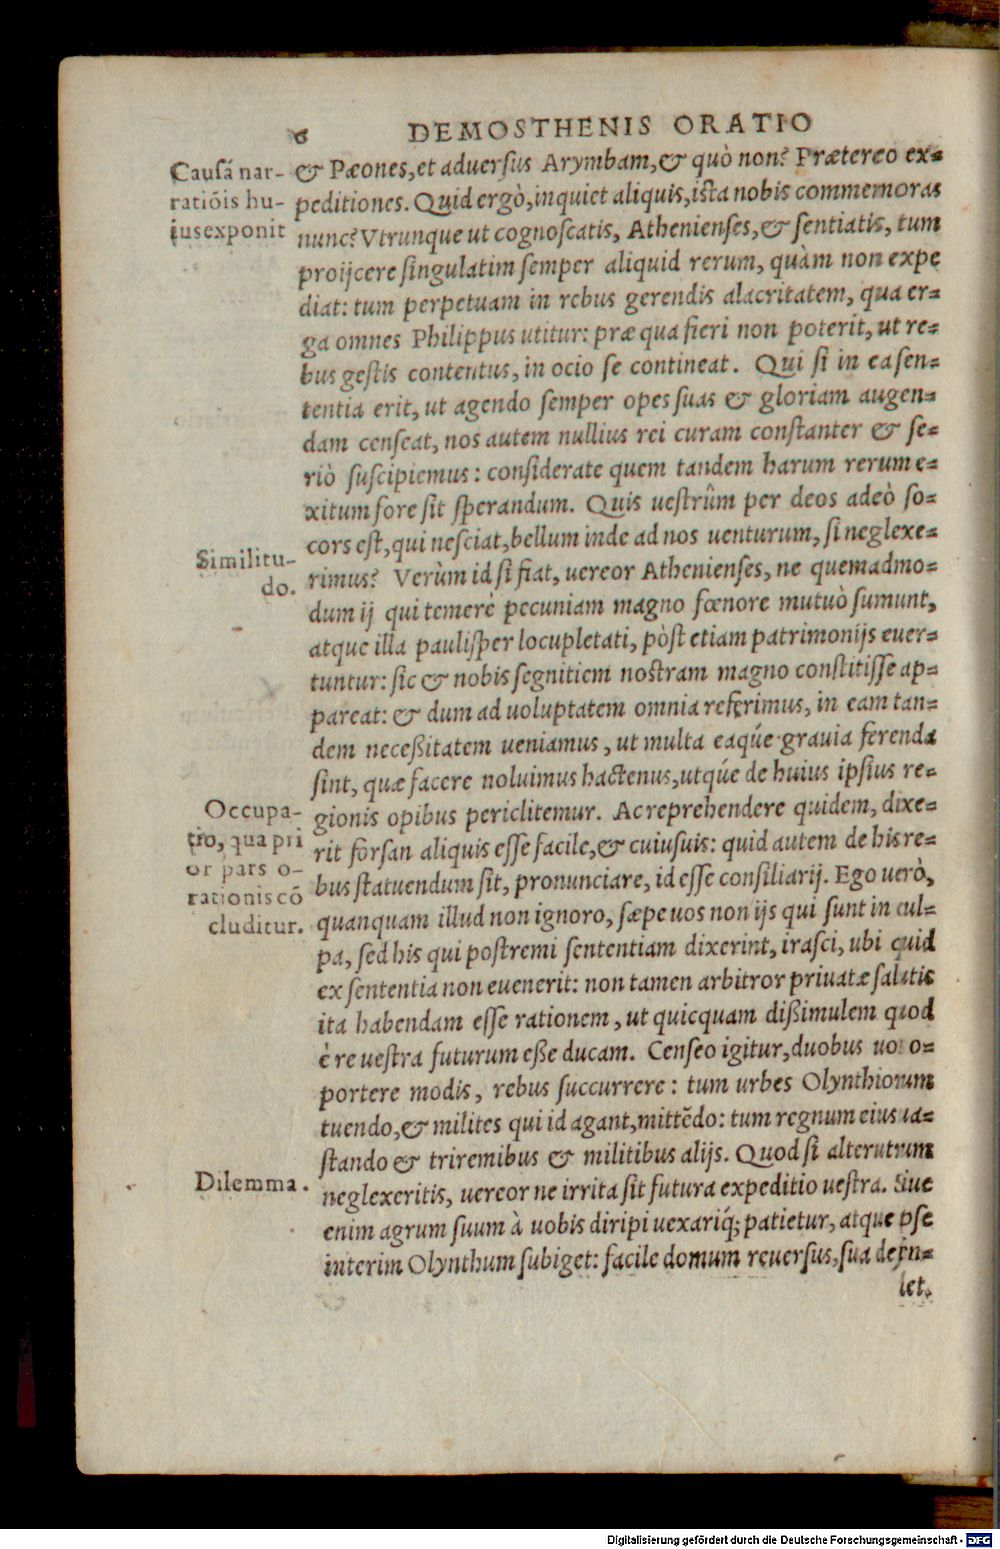 6 DEMOSTHENIS ORATIO
Causá nar-
ratiōis hu-
iusexponit
& Pæones, et aduersus Arymbam, & quò non? Prætereo ex-
peditiones. Quid ergò, inquiet aliquis, ista nobis commemoras
nunc? Vtrunque ut cognoscatis, Athenienses, & sentiatis, tum
proijcere singulatim semper aliquid rerum, quàm non expe
diat: tum perpetuam in rebus gerendis alacritatem, qua er-
ga omnes Philippus utitur: præ qua fieri non poterit, ut re-
bus gestis contentus, in ocio se contineat. Qui si in ea sen-
tentia erit, ut agendo semper opes suas & gloriam augen-
dam censeat, nos autem nullius rei curam constanter & se-
riò suscipiemus: considerate quem tandem harum rerum e-
xitum fore sit sperandum. Quis uestrûm per deos adeò so-
cors est, qui nesciat, bellum inde ad nos uenturum, si neglexe-
Similitu-
do.
rimus? Verùm id si fiat, uereor Athenienses, ne quemadmo-
dum ij qui temerè pecuniam magno fœnore mutuò sumunt,
atque illa paulisper locupletati, pòst etiam patrimonijs euer-
tuntur: sic & nobis segnitiem nostram magno constitisse ap-
pareat: & dum ad uoluptatem omnia referimus, in eam tan-
dem neceßitatem ueniamus, ut multa eaq́ue grauia ferenda
sint, quæ facere noluimus hactenus, utq́ue de huius ipsius re-
Occupa-
tio, qua pri
or pars o-
rationis cō
cluditur.
gionis opibus periclitemur. Ac reprehendere quidem, dixe-
rit forsan aliquis esse facile, & cuiusuis: quid autem de his re-
bus statuendum sit, pronunciare, id esse consiliarij. Ego uerò,
quanquam illud non ignoro, sæpe uos non ijs qui sunt in cul-
pa, sed his qui postremi sententiam dixerint, irasci, ubi quid
ex sententia non euenerit: non tamen arbitror priuatæ salutis
ita habendam esse rationem, ut quicquam dißimulem quod
è re uestra futurum eße ducam. Censeo igitur, duobus uo o-
portere modis, rebus succurrere: tum urbes Olynthiorum
tuendo, & milites qui id agant, mittēdo: tum regnum eius ua-
stando & triremibus & militibus alijs. Quod si alterutrum
Dilemma.
neglexeritis, uereor ne irrita sit futura expeditio uestra. Siue
enim agrum suum à uobis diripi uexariq́; patietur, atque pse
interim Olynthum subiget: facile domum reuersus, sua de in-
let.
Digitalisierung gefördert durch die Deutsche Forschungsgemeinschaft - DFG